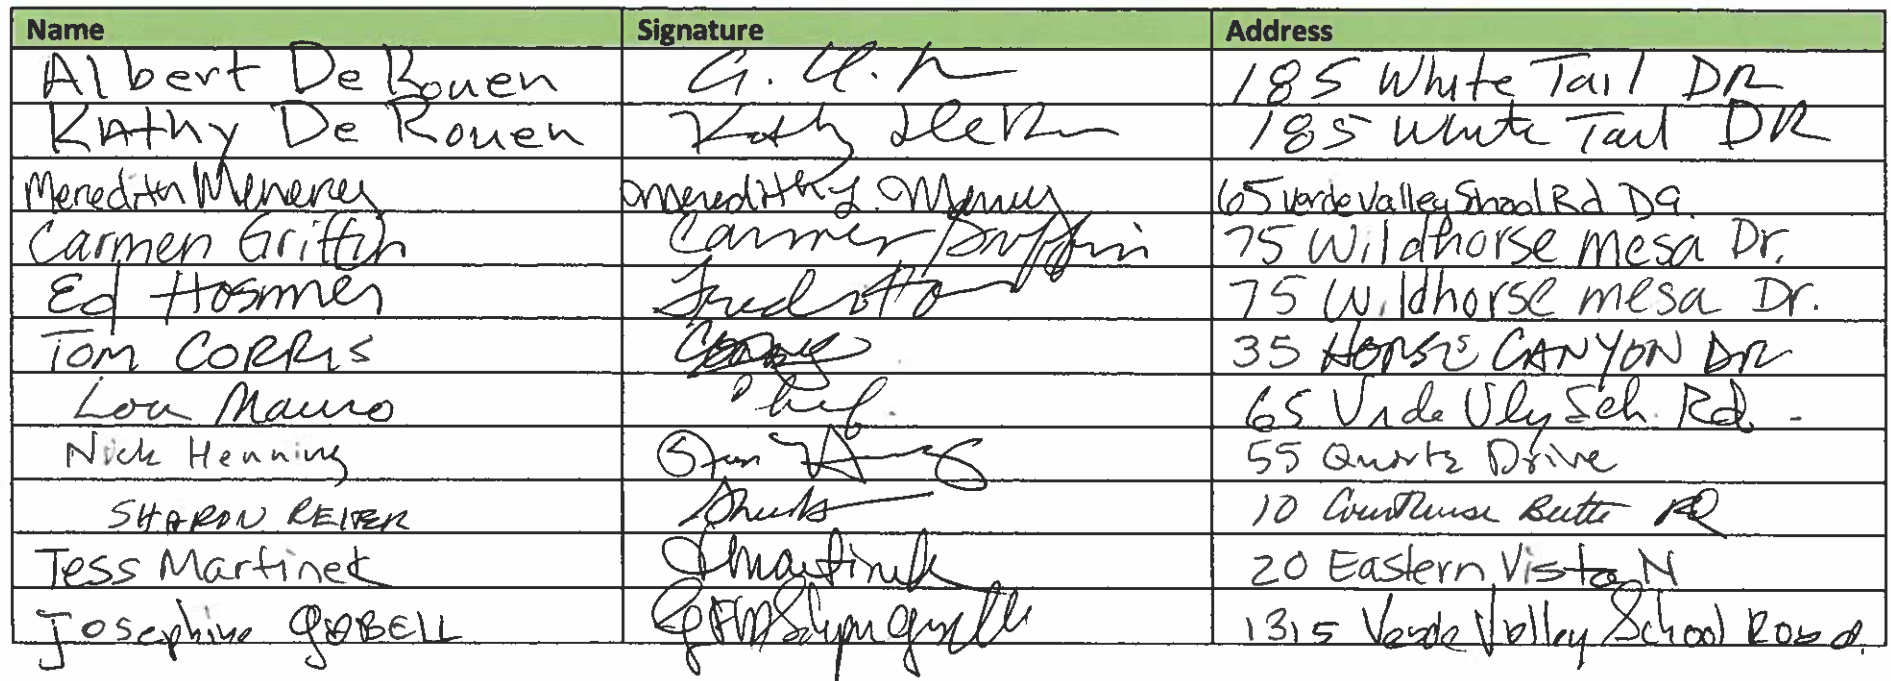 Name Signature Address
Albert De Rouen 185 White Tail DR
Kathy De Rouen Kathy DeR 185 White Tail DR
Meredith Menerey Meredith L. 65 Verde Valley School Rd D9.
Carmen Griffin Carmen Griffin 75 Wildhorse mesa Dr.
Ed Hosmer 75 Wildhorse mesa Dr.
TOM CORRIS 35 HORSE CANYON DR
Lou Mauro 65 Vrde Vly Sch. Rd.
Nick Henning 55 Quartz Drive
SHARON REITER 10 Courthouse Butte RD
Tess Martinek Martinek 20 Eastern Vista N
Josephine 1315 Verde Valley School Road.